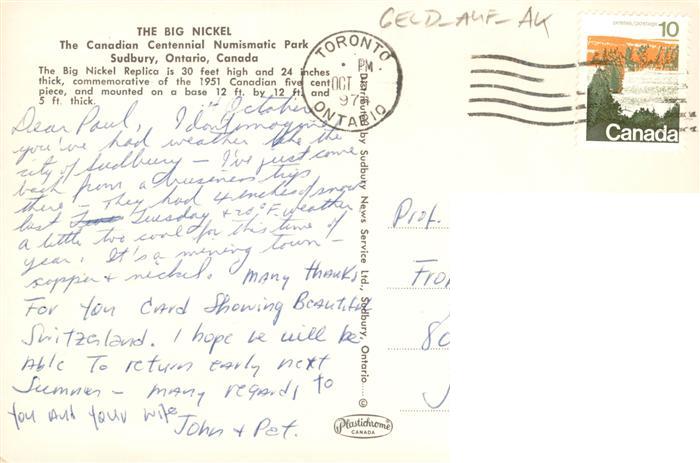 THE BIG NICKEL
The Canadian Centennial Numismatic Park
Sudbury, Ontario, Canada
The Big Nickel Replica is 30 feet high and 24 inches
thick, commemorative of the 1951 Canadian five cent
piece, and mounted on a base 12 ft. by 12 ft. and
5 ft. thick.
GELD-AUF-AK
TORONTO
PM
OCT
197
ONTARIO
postes/postage
10
Canada
October
Dear Paul, I don't imagine
you've had weather like the
city of Sudbury - I've just come
back from a business trip
there - They had 4 inches of snow
last Tuesday + 20°F. weather
a little too cool for this time of
year. It's a mining town -
copper + nickel. Many thanks
For you card showing Beautiful
Switzerland. I hope we will be
Able To return early next
Summer - many regards to
you and your wife
John & Pat.
Distributed by Sudbury News Service Ltd., Sudbury, Ontario.... ©
Prof.
Plastichrome
CANADA